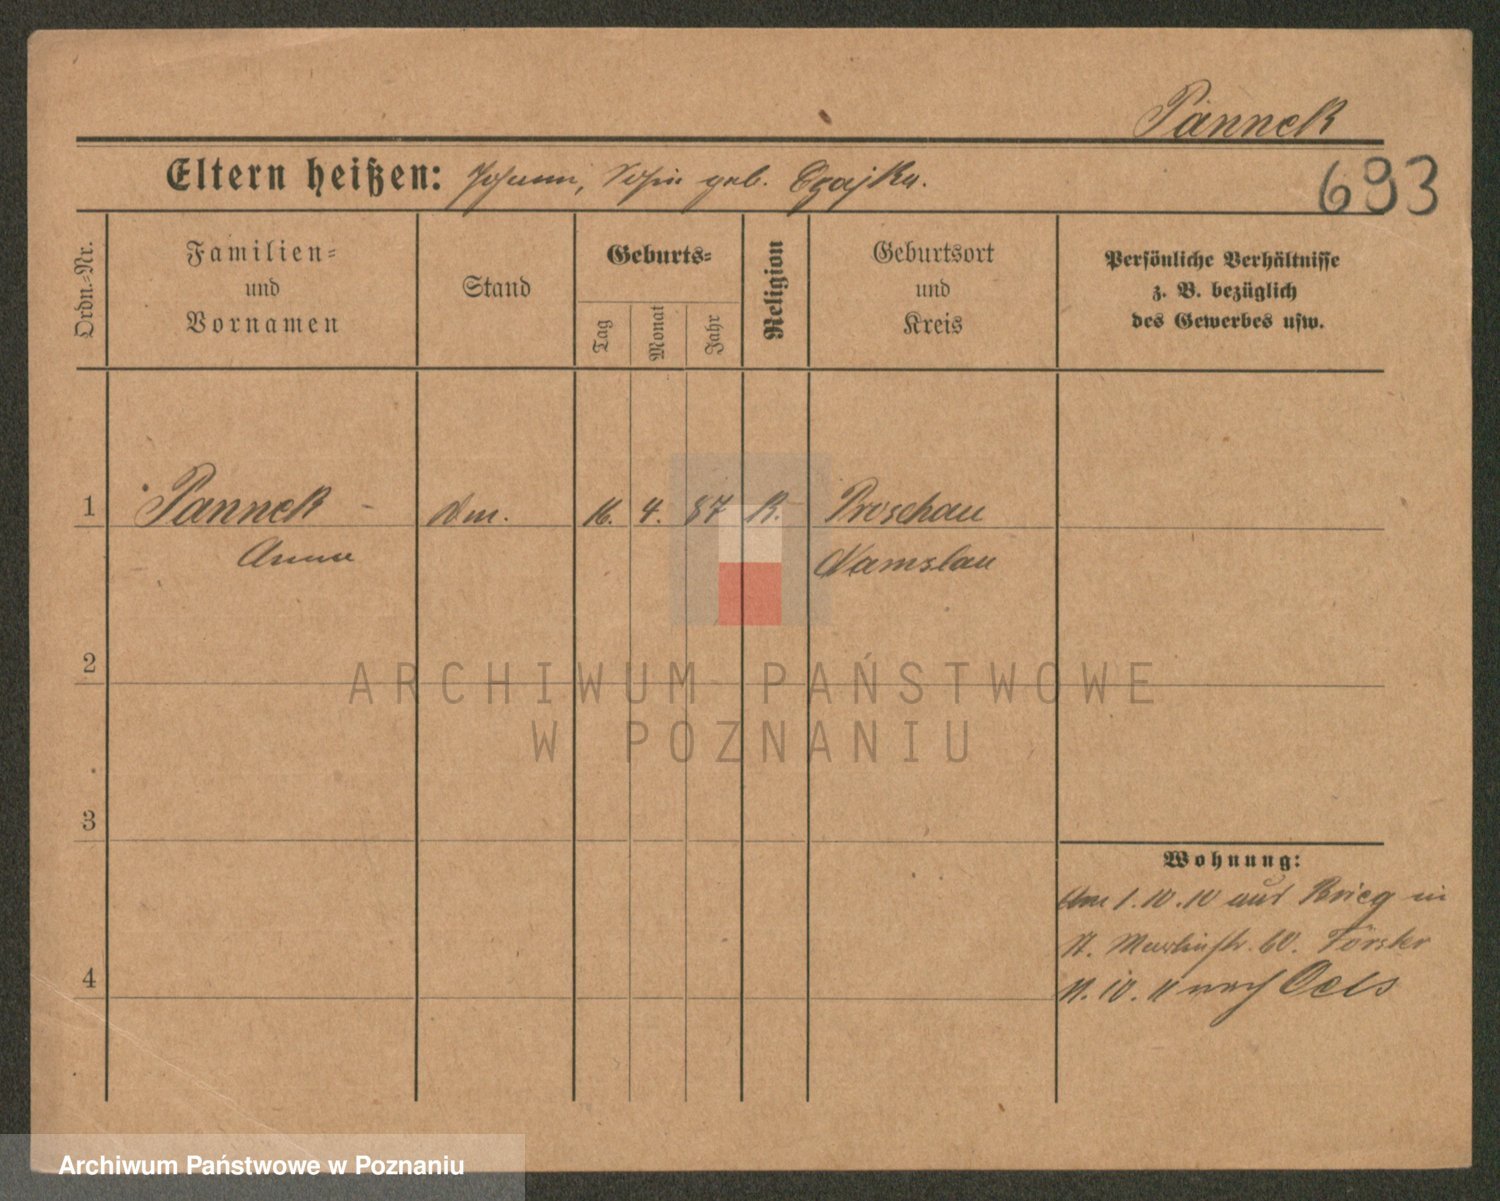 Pannek
Eltern heißen: Johann, geb. Czajka.
693
Ordn.-Nr.
Familien-
und
Vornamen
Stand
Geburts-
Tag
Monat
Jahr
Religion
Geburtsort
und
Kreis
Persönliche Verhältnisse
z. B. bezüglich
des Gewerbes usw.
1 Pannek - 16. 4. 87 K. Proschau
Anna Namslau
2
3
4
Wohnung:
Am 1.10.10 aus Brieg in
St. Martinstr. 60. Förster
11.10.11 nach Oels
ARCHIWUM PAŃSTWOWE
W POZNANIU
Archiwum Państwowe w Poznaniu